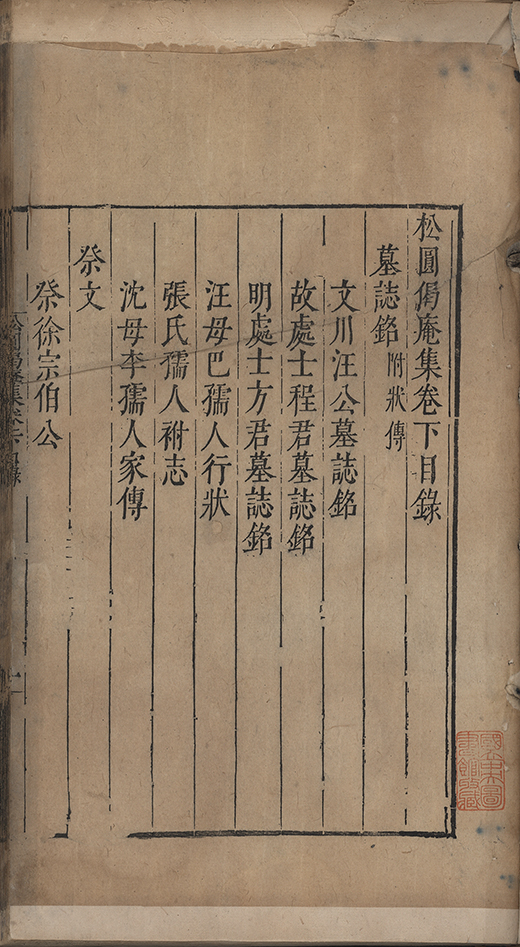 松圓偈庵集卷下目錄
墓誌銘 附狀傳
文川汪公墓誌銘
故處士程君墓誌銘
明處士方君墓誌銘
汪母巴孺人行狀
張氏孺人祔志
沈母李孺人家傳
祭文
祭徐宗伯公